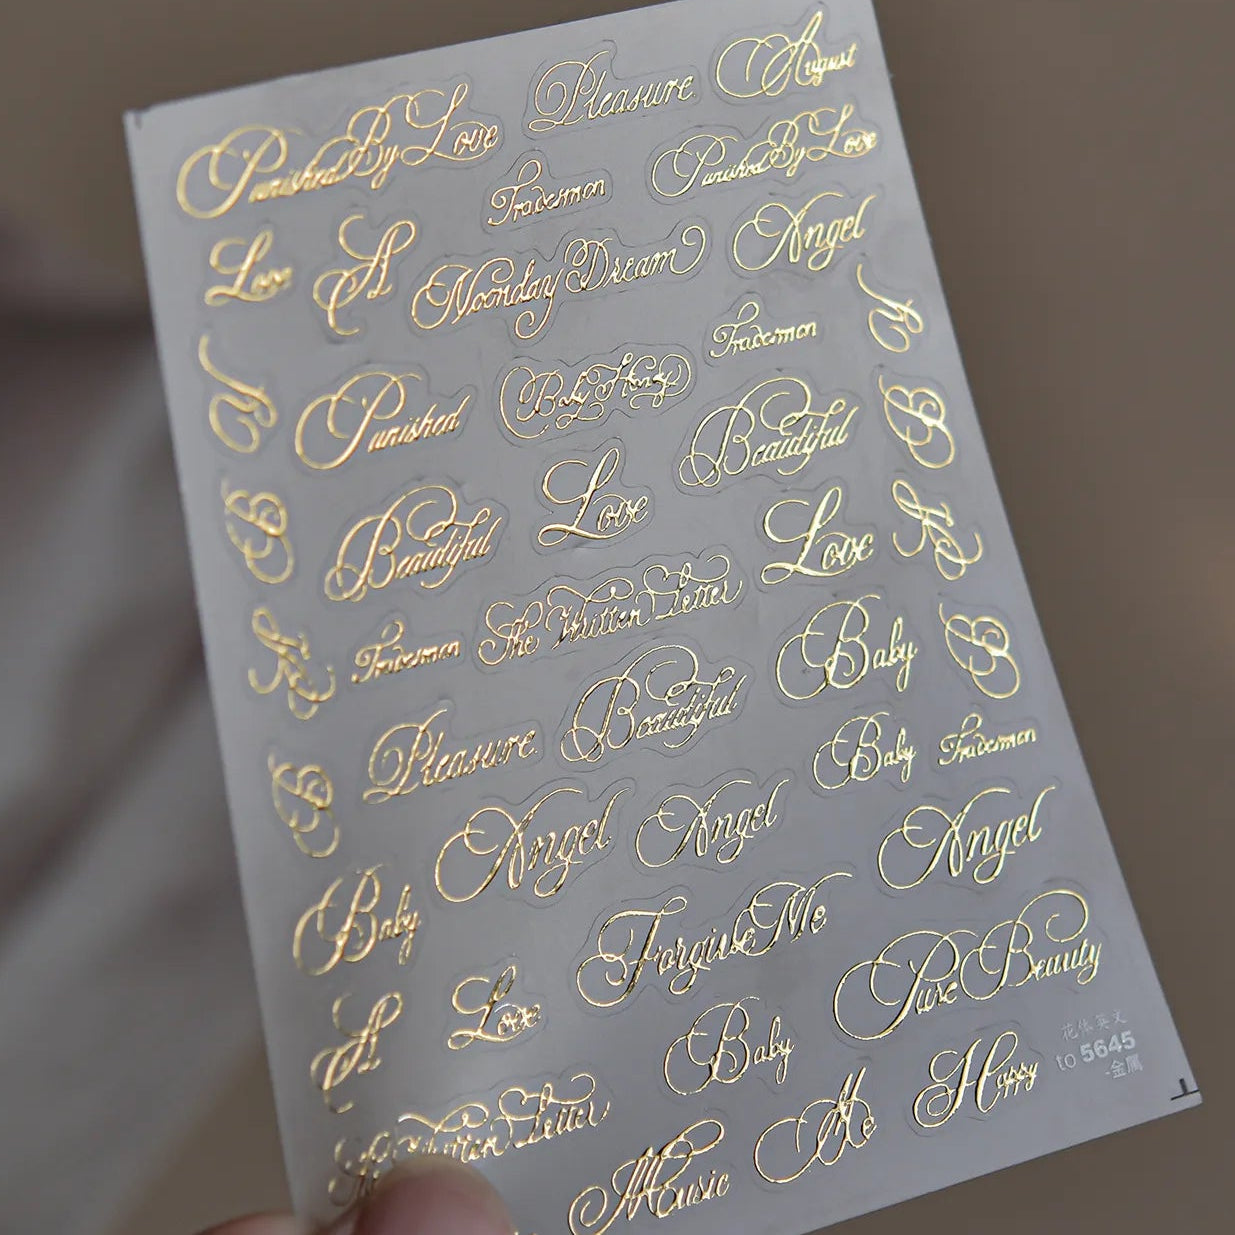 Punished By Love
Pleasure
August
Tradesmen
Punished By Love
Love
A
Noonday Dream
Angel
Tradesmen
B
B
Punished
Baby Honey
Beautiful
B
B
Beautiful
Love
Love
A
A
Tradesmen
The Written Letter
Baby
B
Pleasure
Beautiful
Baby
Tradesmen
B
Angel
Angel
Angel
Baby
Forgive Me
Pure Beauty
A
Love
Baby
花体英文
to 5645
-金属
Written Letter
Music
Me
Happy